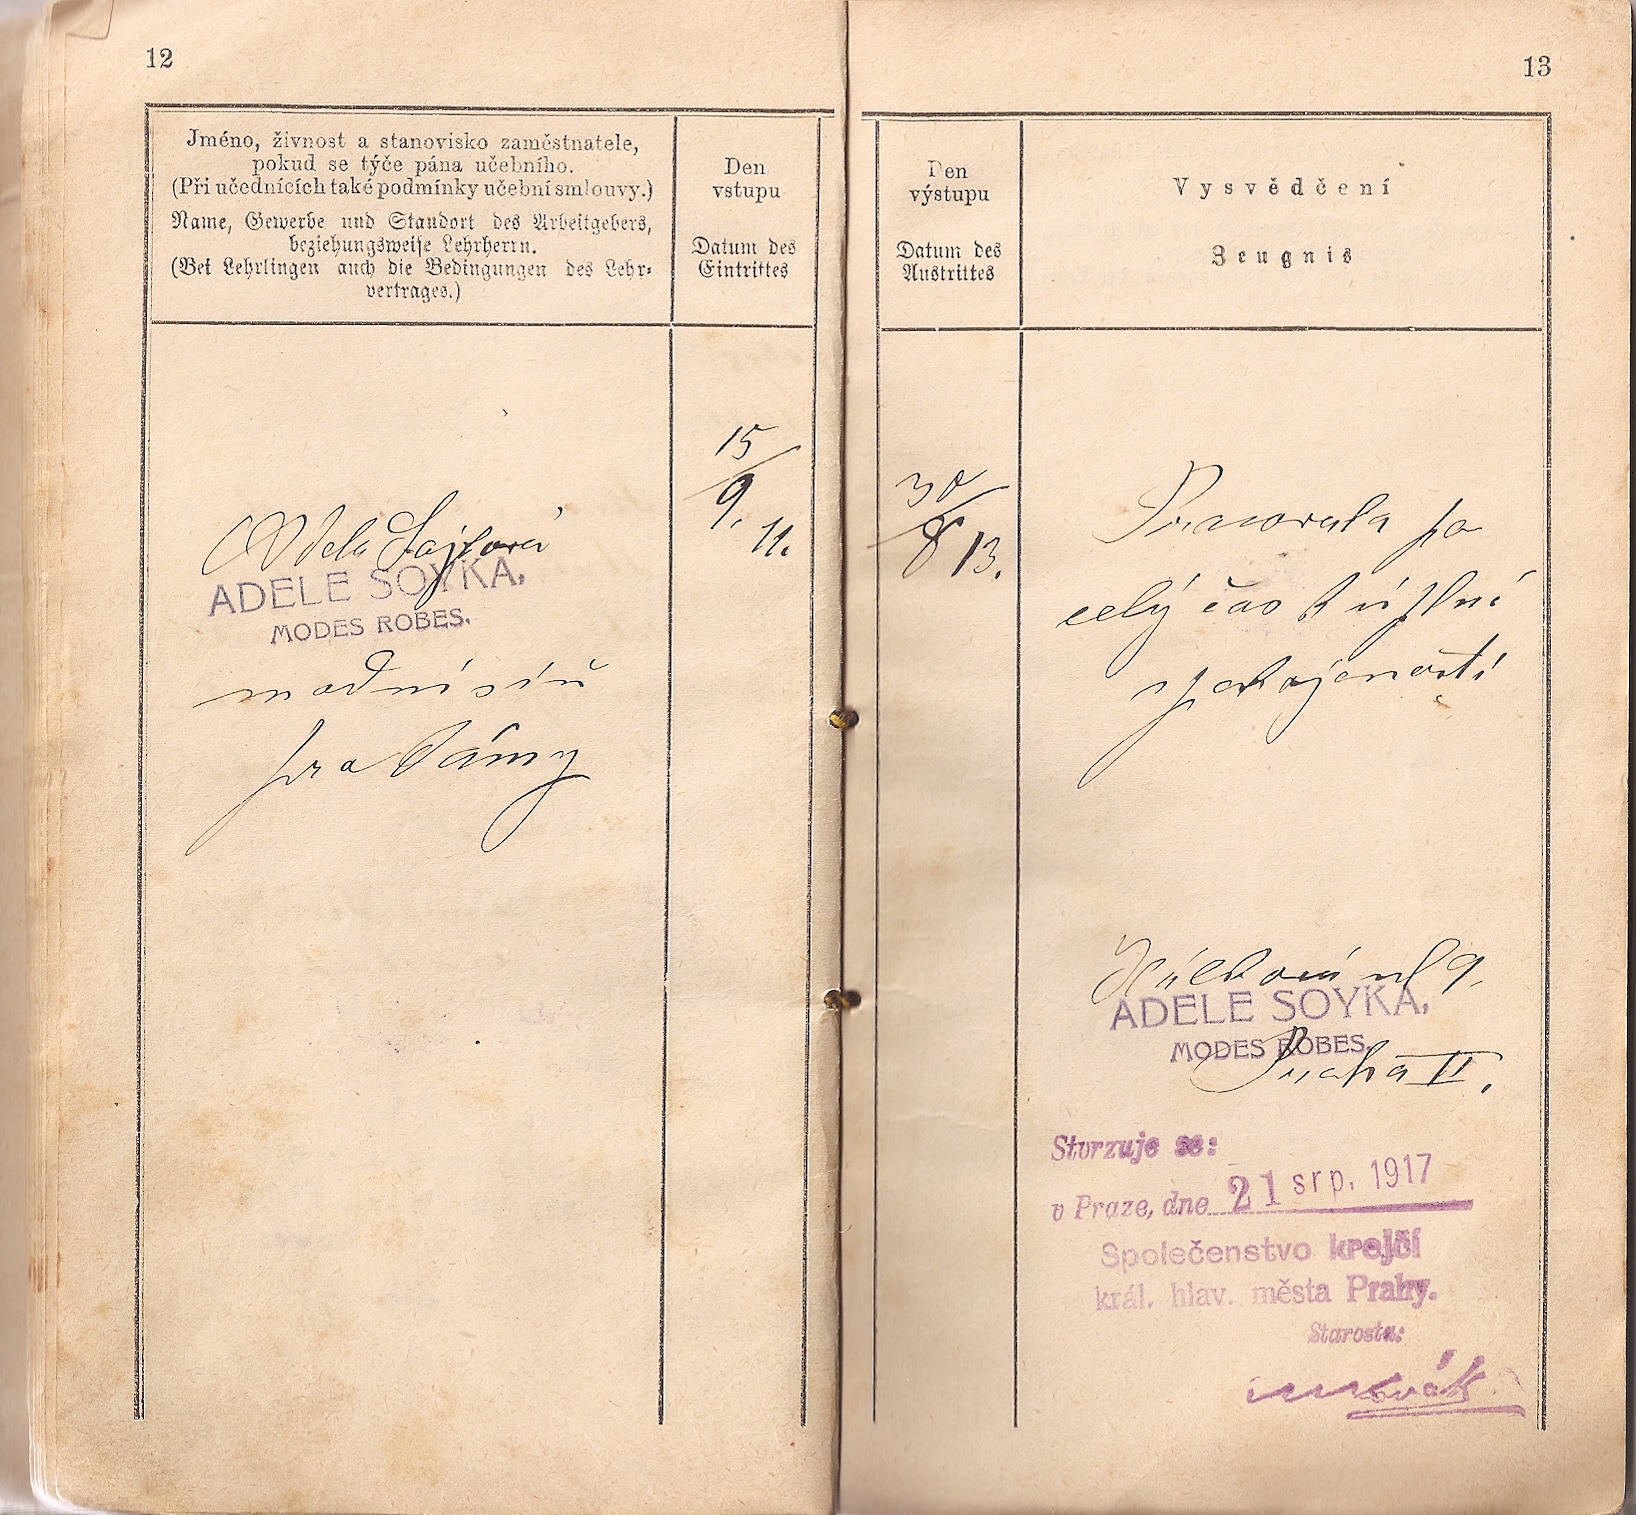 12
Jméno, živnost a stanovisko zaměstnatele,
pokud se týče pána učebního.
(Při učednících také podmínky učební smlouvy.)
Name, Gewerbe und Standort des Arbeitgebers,
beziehungsweise Lehrherrn.
(Bei Lehrlingen auch die Bedingungen des Lehr-
vertrages.)
Den
vstupu
Datum des
Eintrittes
15/9. 11.
Adela
ADELE SOYKA,
MODES ROBES.
modní síň
pro dámy
13
Den
výstupu
Datum des
Austrittes
Vysvědčení
Zeugnis
30/8 13.
Pracovala po
celý čas k úplní
spokojenosti
Hálkova ul 9.
ADELE SOYKA,
MODES ROBES.
Praha II.
Stvrzuje se:
v Praze, dne 21 srp. 1917
Společenstvo krejčí
král. hlav. města Prahy.
Starosta: